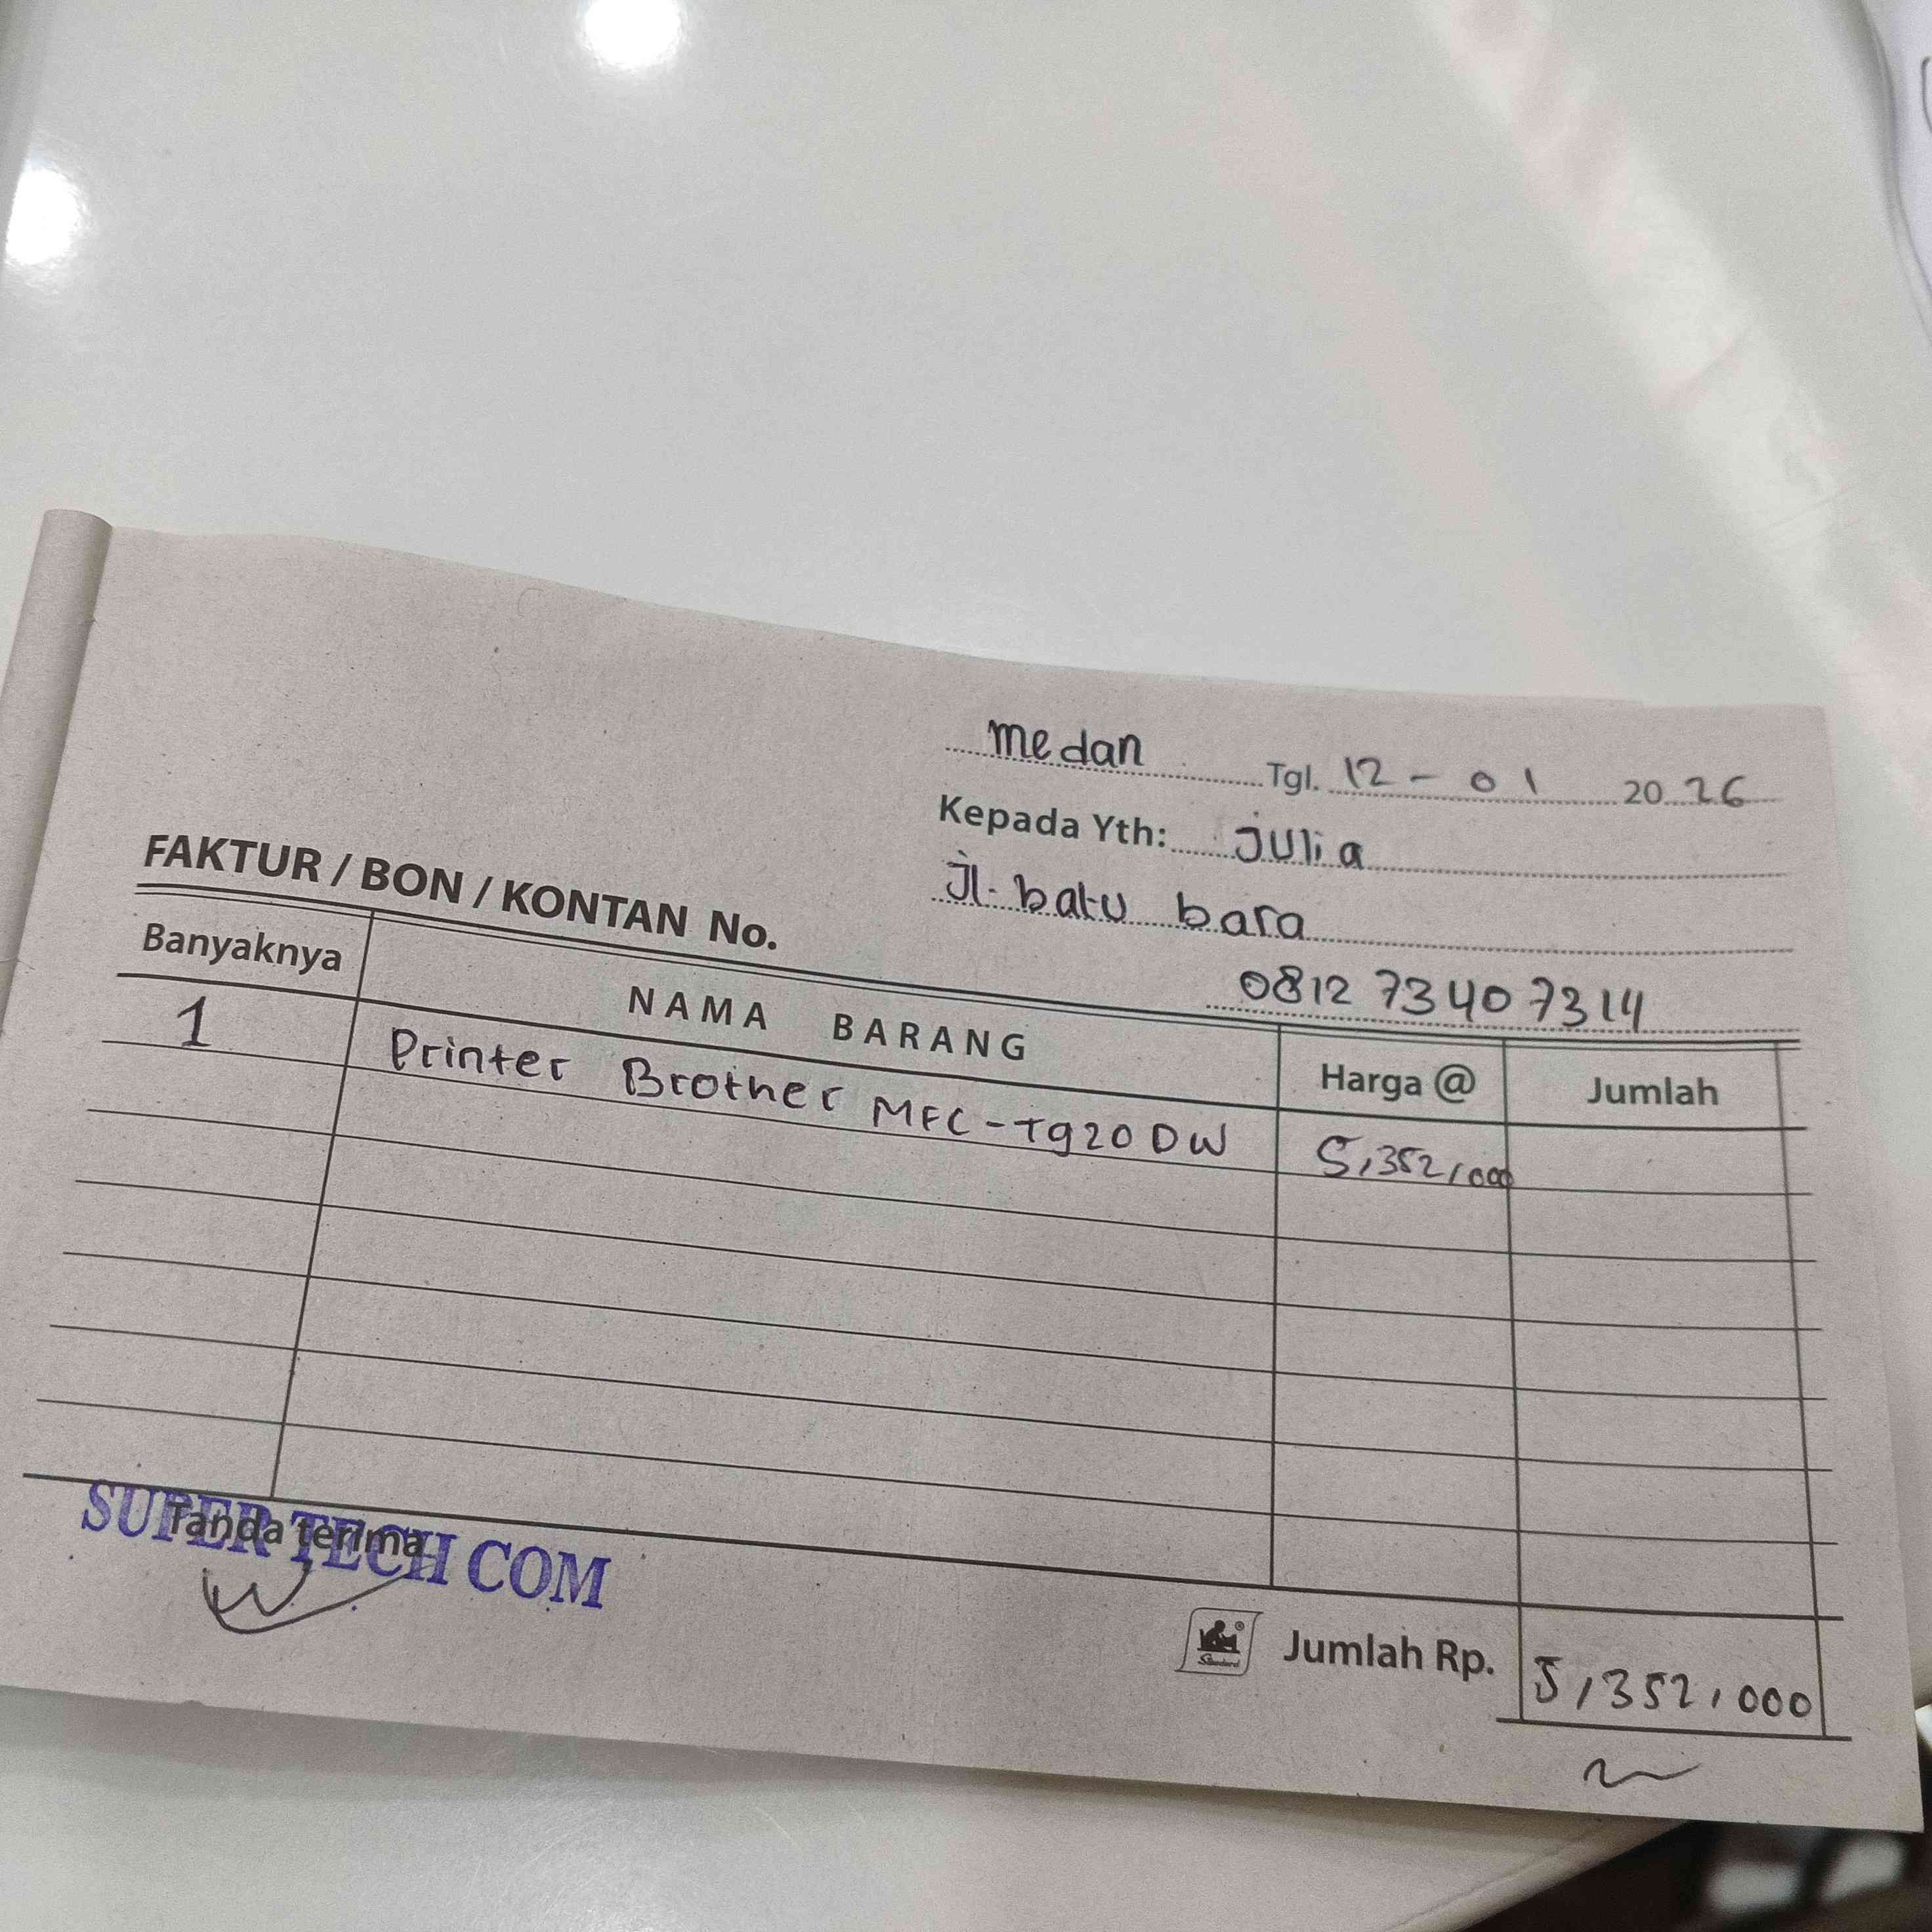 medan Tgl. 12 - 01 2026
Kepada Yth: Julia
Jl. batu bara
0812 7340 7314
FAKTUR / BON / KONTAN No.
Banyaknya NAMA BARANG Harga @ Jumlah
1 Printer Brother MFC-T920 DW 5,352,000
Tanda terima
SUPER TECH COM
Standard
Jumlah Rp. 5,352,000